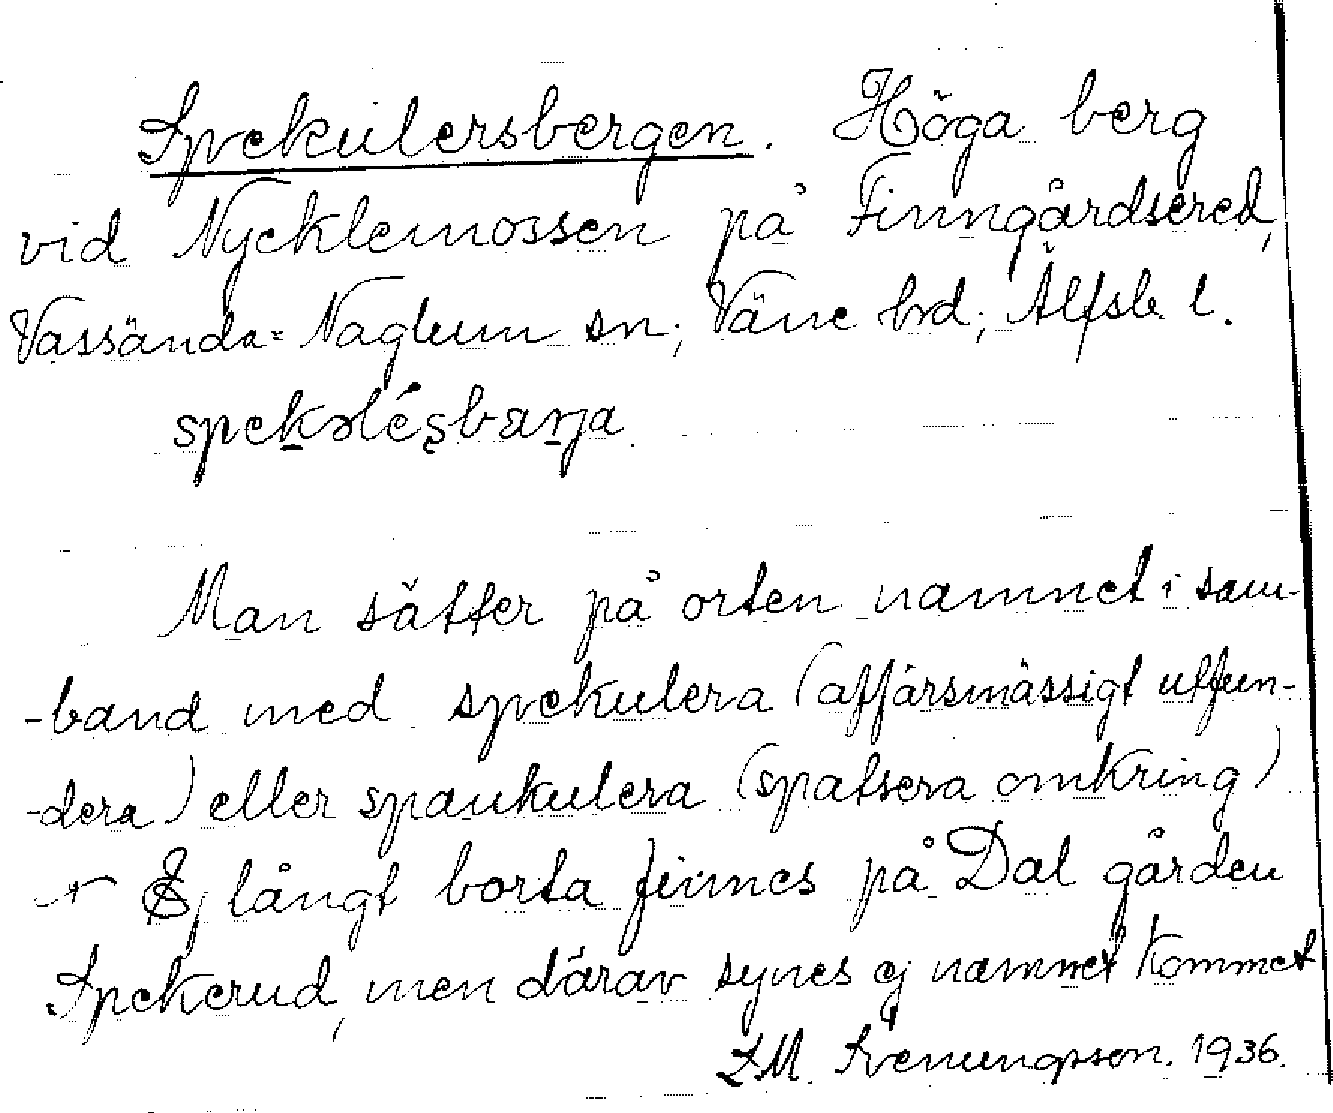 Spekulersbergen. Höga berg
vid Nycklemossen på Finngårdsered,
Vassända-Naglum sn; Väne hd; Älfsb. l.
spekəlé̱sbæŋa
Man sätter på orten namnet i sam-
-band med spekulera (affärsmässigt utfun-
-dera) eller spankulera (spatsera omkring)
Ej långt borta finnes på Dal gården
Spekerud, men därav synes ej namnet kommet
S.M. Svenungsson. 1936.